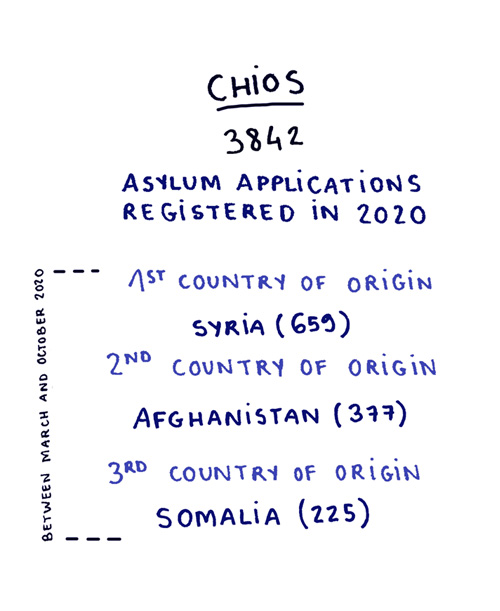 CHIOS
3842
ASYLUM APPLICATIONS
REGISTERED IN 2020
BETWEEN MARCH AND OCTOBER 2020
1ST COUNTRY OF ORIGIN
SYRIA (659)
2ND COUNTRY OF ORIGIN
AFGHANISTAN (377)
3RD COUNTRY OF ORIGIN
SOMALIA (225)